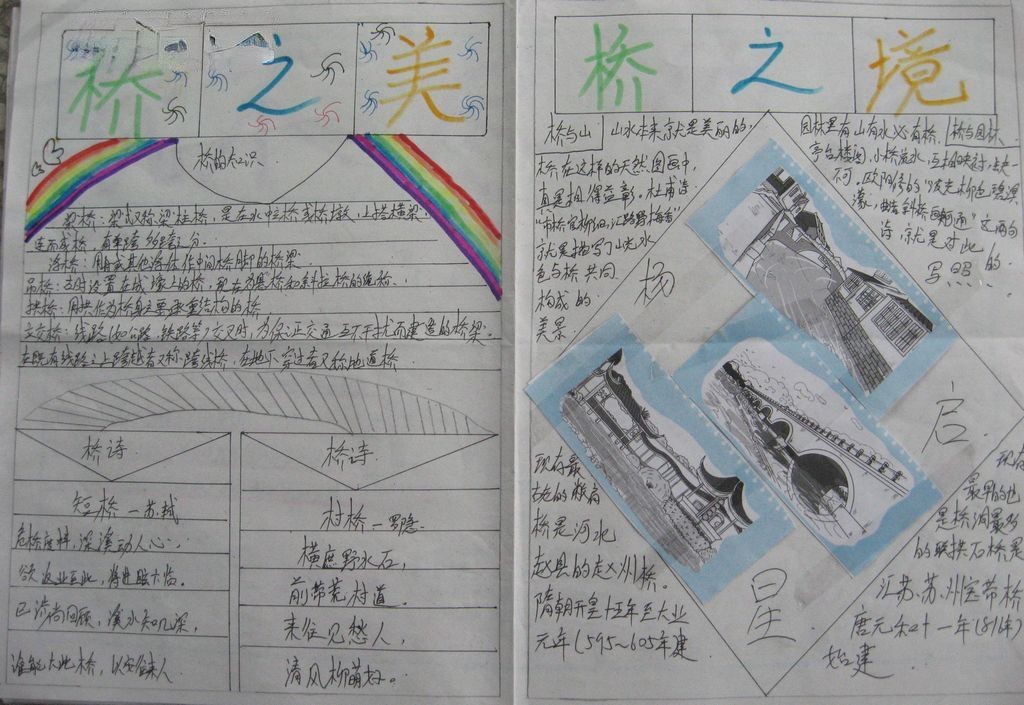 桥之美
桥的知识
梁桥：梁又称梁柱桥，是在水中立桥或桥墩，上搭横梁，
连而成桥，有单跨多跨之分。
浮桥：用舟或其他浮体作中间桥脚的桥梁
吊桥：古时设置在城壕上的桥，现在为悬桥和斜拉桥的统称。
拱桥：用拱作为桥身主要承重结构的桥
立交桥：线路（如公路，铁路等）交叉时，为保证交通互不干扰而建造的桥梁。
在既有线路之上跨越者又称跨线桥，在地下穿过者又称地道桥
桥诗
短桥—苏轼
危桥度料，深溪动人心，
已涉尚回顾，溪水知几深，
谁能大此桥，以安僦人
桥诗
村桥—罗隐
横庭野水石，
前带荒村道。
来往见愁人，
清风柳萌好。
桥之境
桥与山
山水本来就是美丽的，
桥在这样的天然图画中，
真是相得益彰。杜甫诗
就是描写了山光水
色与桥共同
构成的
美景
桥与园林
园林里有山有水必有桥。
亭台楼阁，小桥流水，互相映衬，缺一
不可。欧阳修的“波光柳色碧溟
濛，曲渚斜桥画舸通”这两句
诗，就是对此
写照的
杨
启
星
现存最
古老的敞肩
桥是河水
赵县的赵州桥。
隋朝开皇十五年至大业
元年（595～605年建
现存
最早的也
是桥洞最多
的联拱石桥是
江苏、苏州宝带桥
唐元和十一年（816年）
始建